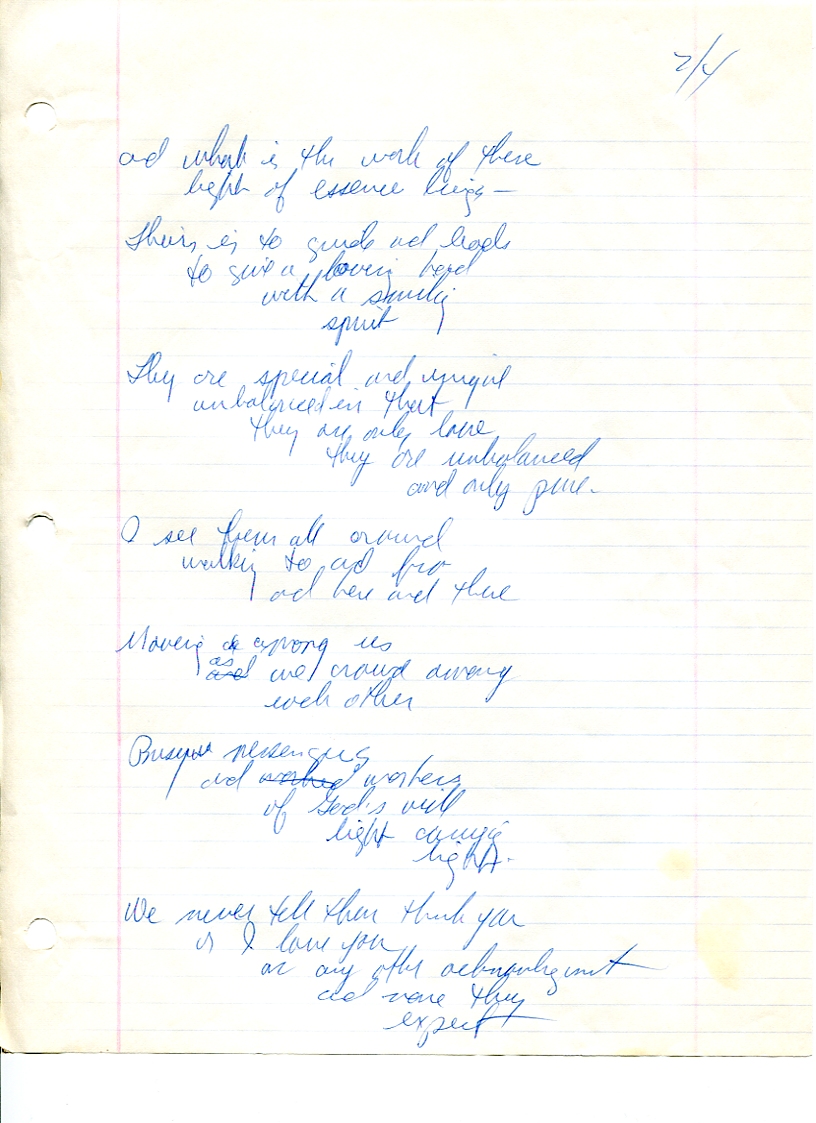 2/4
and what is the work of these
light of essence beings —
Theirs is to guide and lead
to give a loving hand
with a smiling
spirit
They are special and unique
unbalanced in that
they are only love
they are unbalanced
and only pure.
I see them all around
walking to and fro
and here and there
Moving among us
as we crowd among
each other
Busy messengers
and workers
of God's will
light carrying
light.
We never tell them thank you
or I love you
or any other acknowledgment
and none they
expect